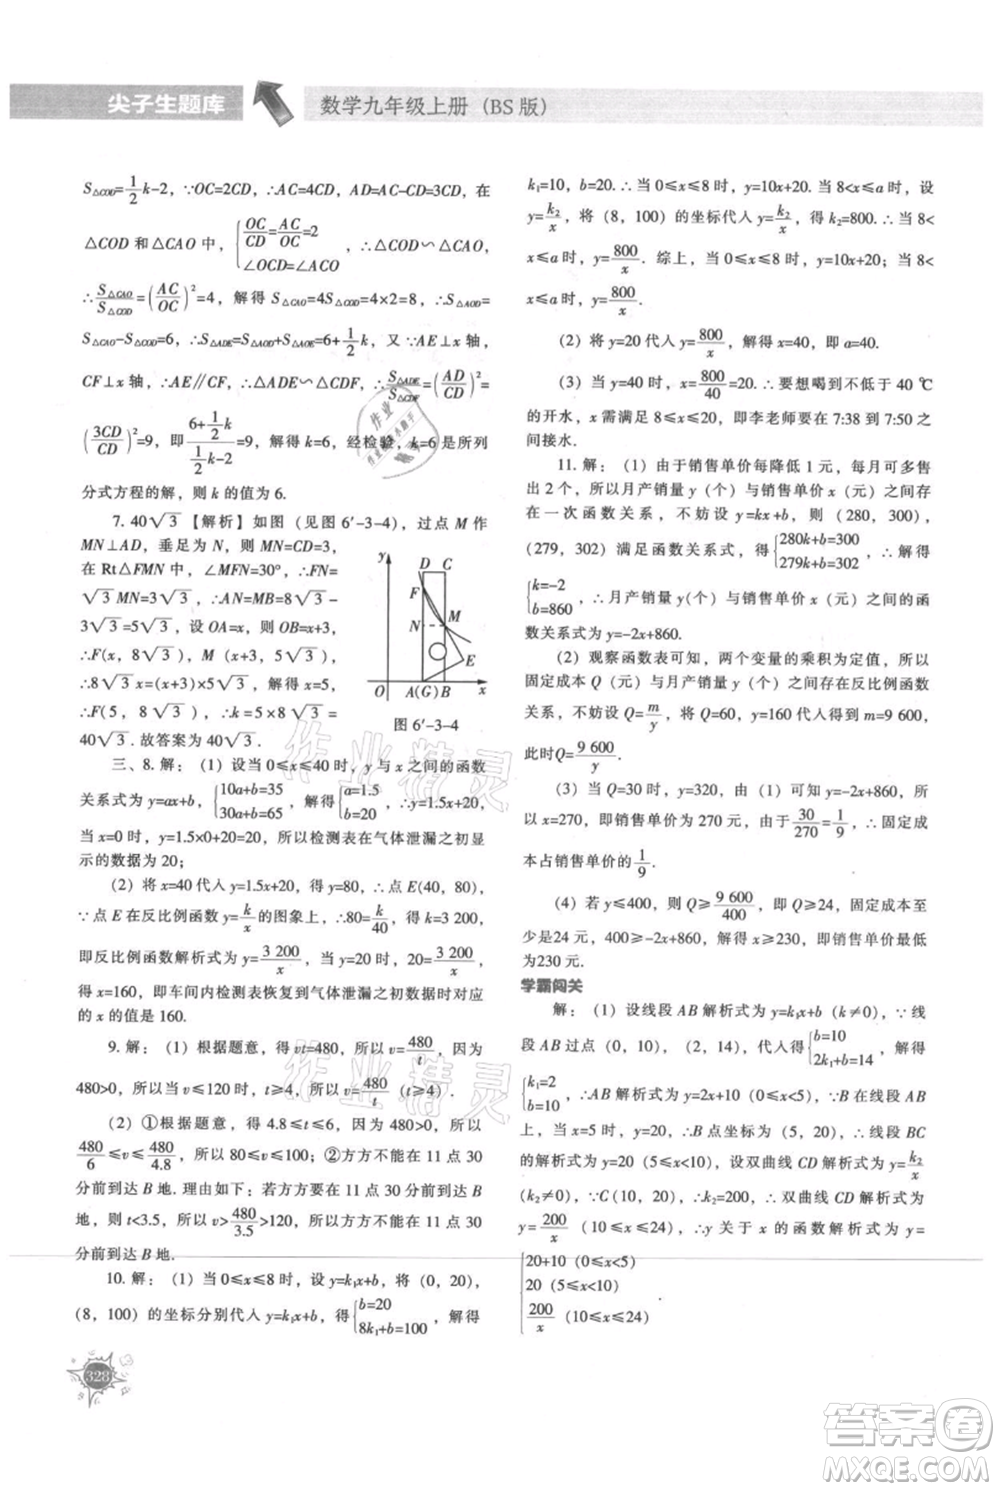 尖子生题库
数学九年级上册（BS版）
S△COD=1/2k-2，∵OC=2CD，∴AC=4CD，AD=AC-CD=3CD，在
△COD 和△CAO 中，{OC/CD=AC/OC=2 ∠OCD=∠ACO，∴△COD∽△CAO，
∴S△CAO/S△COD=(AC/OC)²=4，解得 S△CAO=4S△COD=4×2=8，∵
S△CAO-S△COD=6，∴S△ADE=S△AOD+S△AOE=6+1/2k，又∵AE⊥x 轴，
CF⊥x 轴，∴AE∥CF，∴△ADE∽△CDF，∴S△ADE/S△CDF=(AD/CD)²=
(3CD/CD)²=9，即(6+1/2k)/(1/2k)=9，解得 k=6，经检验，k=6 是所列
分式方程的解，则 k 的值为 6.
7. 40√3 【解析】如图（见图 6′-3-4），过点 M 作
MN⊥AD，垂足为 N，则 MN=CD=3，
在 Rt△FMN 中，∠MFN=30°，∴FN=
√3 MN=3√3，∴AN=MB=8√3-
3√3=5√3，设 OA=x，则 OB=x+3，
∴F(x，8√3)，M（x+3，5√3），
∴8√3 x=(x+3)×5√3，解得 x=5，
∴F(5，8√3)，∴k=5×8√3=
40√3. 故答案为 40√3.
y D C F N M E O A(G) B x
图 6′-3-4
三、8. 解：（1）设当 0≤x≤40 时，y 与 x 之间的函数
关系式为 y=ax+b，{10a+b=35 30a+b=65，解得{a=1.5 b=20，∴y=1.5x+20，
当 x=0 时，y=1.5×0+20=20，所以检测表在气体泄漏之初显
示的数据为 20；
（2）将 x=40 代入 y=1.5x+20，得 y=80，∴点 E(40，80)，
∵点 E 在反比例函数 y=k/x 的图象上，∴80=k/40，得 k=3 200，
即反比例函数解析式为 y=3 200/x，当 y=20 时，20=3 200/x，
得 x=160，即车间内检测表恢复到气体泄漏之初数据时对应
的 x 的值是 160.
9. 解：（1）根据题意，得 vt=480，所以 v=480/t，因为
480>0，所以当 v≤120 时，t≥4，所以 v=480/t（t≥4）.
（2）①根据题意，得 4.8≤t≤6，因为 480>0，所以
480/6≤v≤480/4.8，所以 80≤v≤100；②方方不能在 11 点 30
分前到达 B 地. 理由如下：若方方要在 11 点 30 分前到达 B
地，则 t<3.5，所以 v>480/3.5>120，所以方方不能在 11 点 30
分前到达 B 地.
10. 解：（1）当 0≤x≤8 时，设 y=k₁x+b，将（0，20），
（8，100）的坐标分别代入 y=k₁x+b，得{b=20 8k₁+b=100，解得
k₁=10，b=20. ∴当 0≤x≤8 时，y=10x+20. 当 8<x≤a 时，设
y=k₂/x，将（8，100）的坐标代入 y=k₂/x，得 k₂=800. ∴当 8<
x≤a 时，y=800/x. 综上，当 0≤x≤8 时，y=10x+20；当 8<
x≤a 时，y=800/x.
（2）将 y=20 代入 y=800/x，解得 x=40，即 a=40.
（3）当 y=40 时，x=800/40=20. ∴要想喝到不低于 40 ℃
的开水，x 需满足 8≤x≤20，即李老师要在 7:38 到 7:50 之
间接水.
11. 解：（1）由于销售单价每降低 1 元，每月可多售出
2 个，所以月产销量 y（个）与销售单价 x（元）之间存
在一次函数关系，不妨设 y=kx+b，则（280，300），
（279，302）满足函数关系式，得{280k+b=300 279k+b=302，解得
{k=-2 b=860，∴月产销量 y(个）与销售单价 x（元）之间的函
数关系式为 y=-2x+860.
（2）观察函数表可知，两个变量的乘积为定值，所以
固定成本 Q（元）与月产销量 y（个）之间存在反比例函数
关系，不妨设 Q=m/y，将 Q=60，y=160 代入得 m=9 600，
此时Q=9 600/y.
（3）当 Q=30 时，y=320，由（1）可知 y=-2x+860，所
以 x=270，即销售单价为 270 元，由于30/270=1/9，∴固定成
本占销售单价的1/9.
（4）若 y≤400，则 Q≥9 600/400，即 Q≥24，固定成本至
少是24 元，400≥-2x+860，解得 x≥230，即销售单价最低
为230 元.
学霸闯关
解：（1）设线段 AB 解析式为 y=k₁x+b（k≠0），∵线
段 AB 过点（0，10），（2，14），代入得{b=10 2k₁+b=14，解得
{k₁=2 b=10，∴AB 解析式为 y=2x+10（0≤x<5），∵B 在线段 AB
上，当 x=5 时，y=20，∴B 点坐标为（5，20），∴线段 BC
的解析式为 y=20（5≤x<10），设双曲线 CD 解析式为 y=k₂/x
（k₂≠0），∵C（10，20），∴k₂=200，∴双曲线 CD 解析式为
y=200/x（10≤x≤24），∴y 关于 x 的函数解析式为 y=
{20+10（0≤x<5）
20（5≤x<10）
200/x（10≤x≤24）
328
作业精灵
作业精灵
答案卷
MXQE.COM